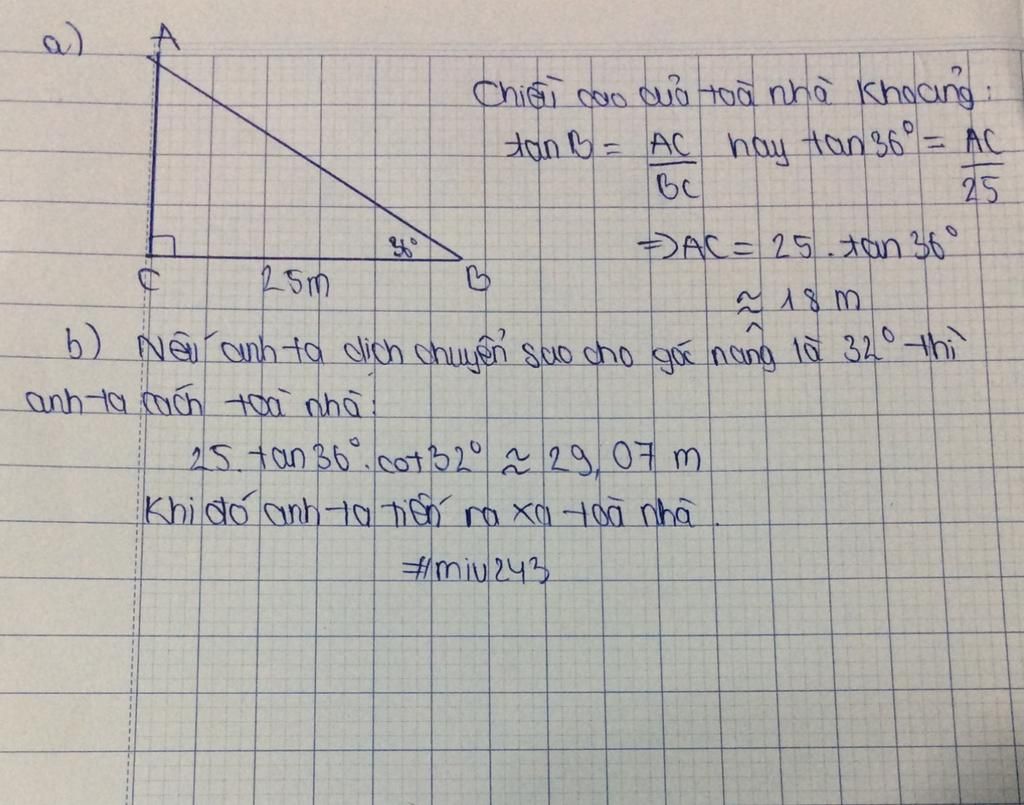 a)
A
C
25m
36°
B
Chiều cao của toà nhà khoảng:
tan B = AC/BC hay tan 36° = AC/25
⇒ AC = 25 . tan 36°
≈ 18 m
b) Nếu anh ta dịch chuyển sao cho góc nâng là 32° thì
anh ta cách toà nhà:
25. tan 36°. cot 32° ≈ 29,07 m
Khi đó anh ta tiến ra xa toà nhà.
#miu243